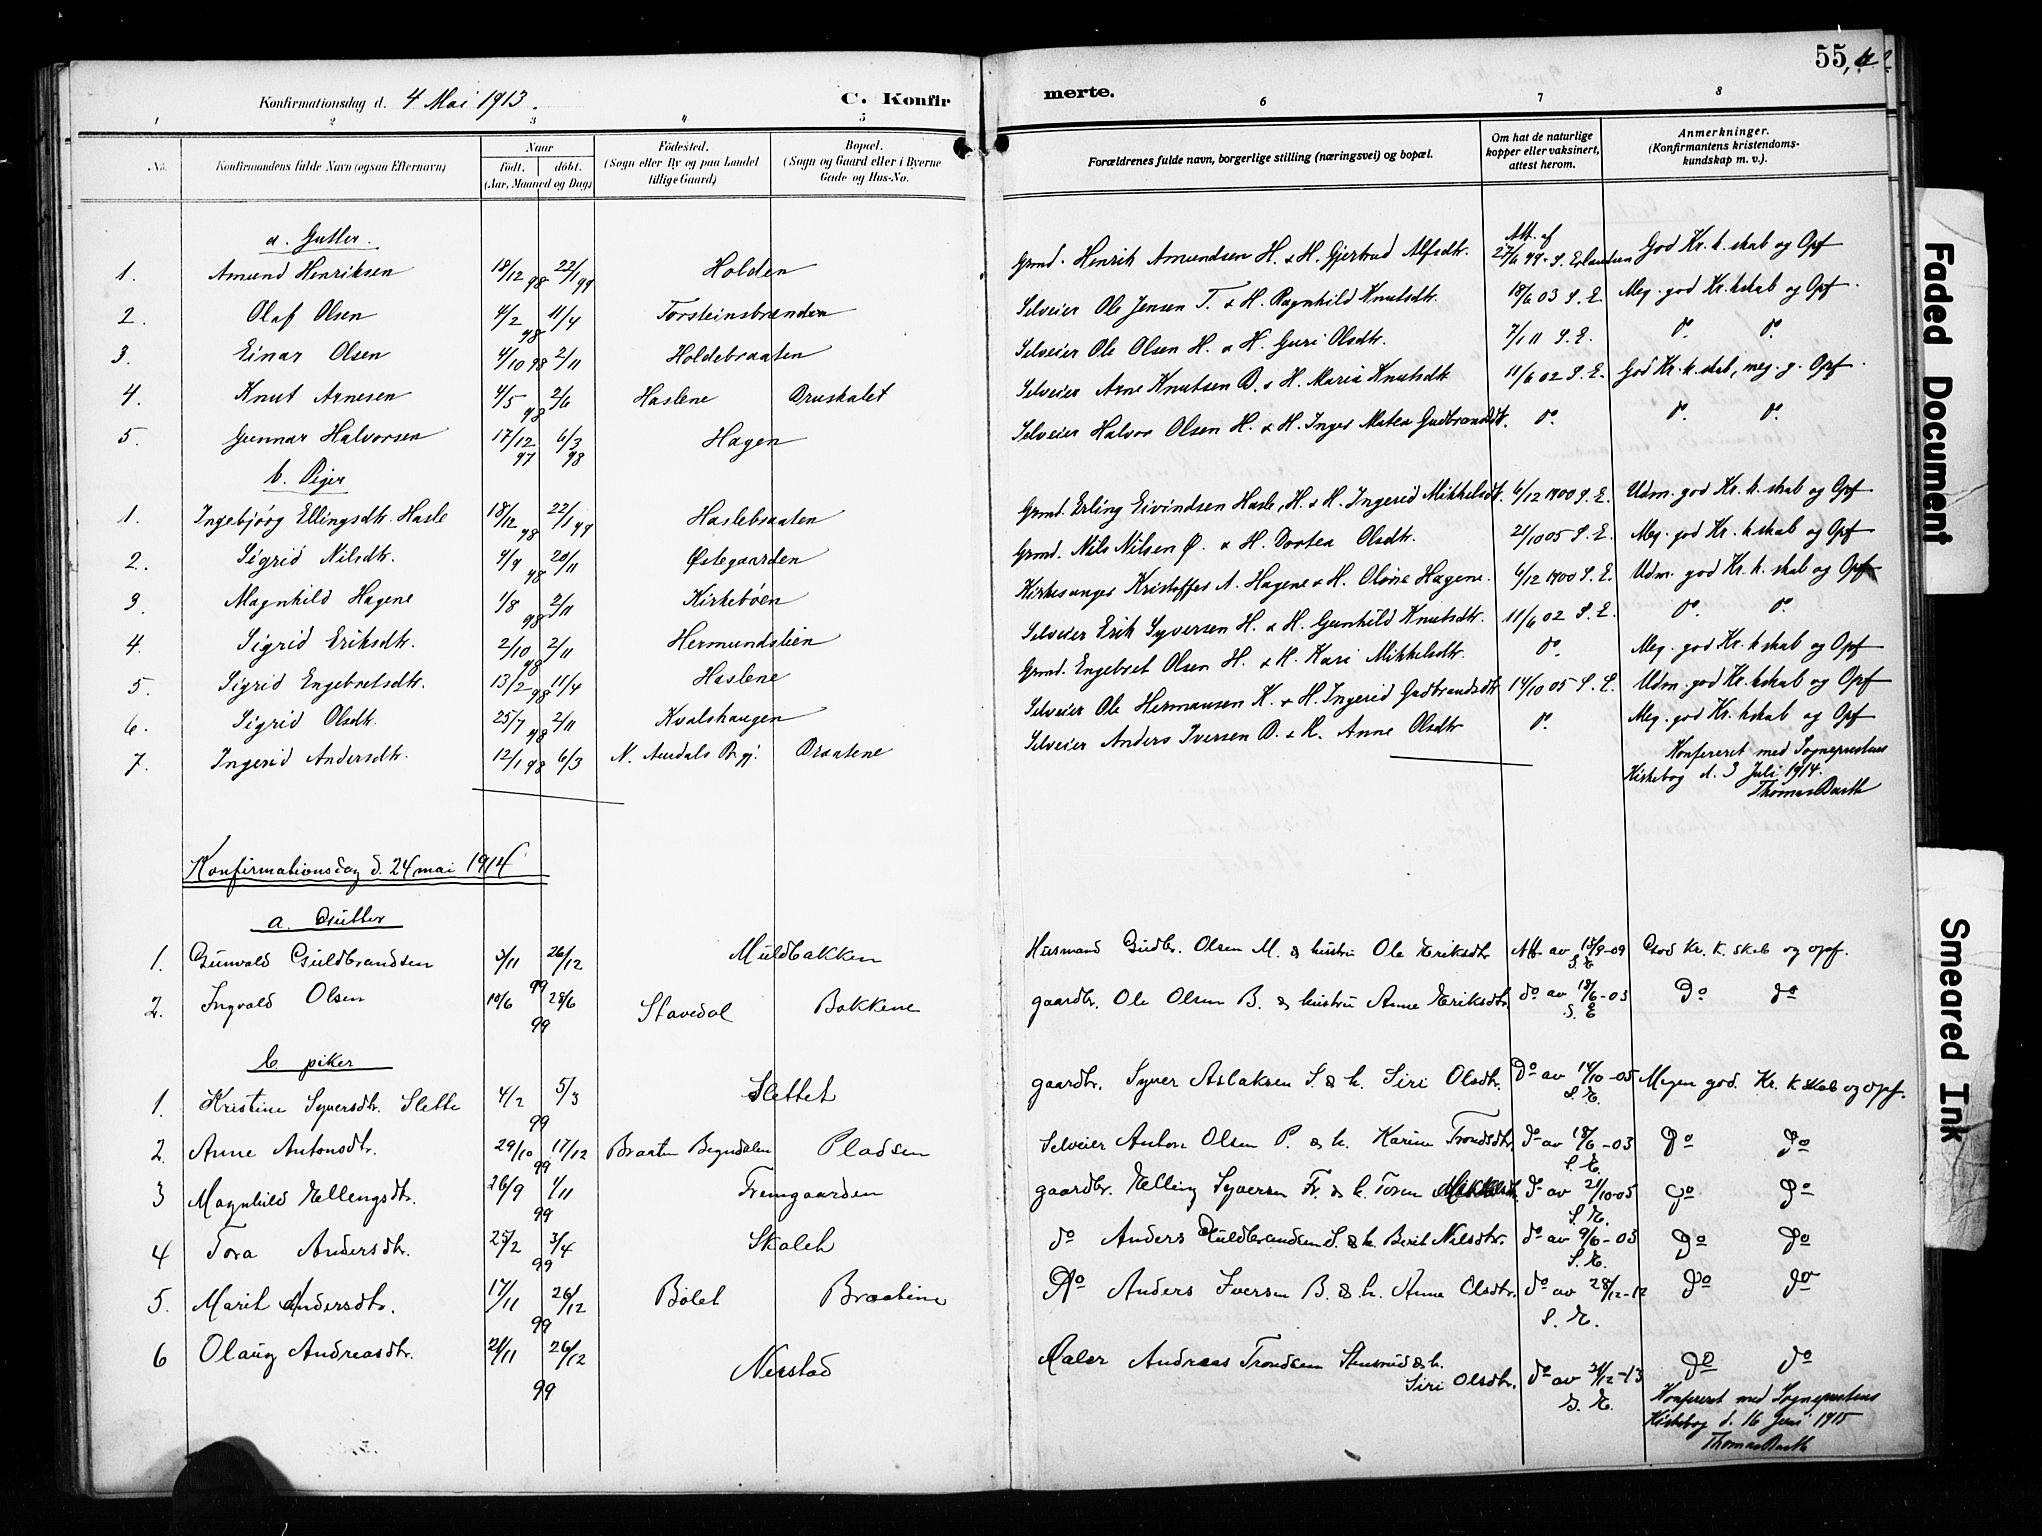 55
Konfirmationsdag d. 4 Mai 1913.
C. Konfir
merte.
1 2 3 4 5 6 7 8
No.
Konfirmandens fulde Navn (ogsaa Efternavn)
Naar
Født. døbt.
(Aar, Maaned og Dag)
Fødested.
(Sogn eller By og paa Landet
tillige Gaard)
Bopæl.
(Sogn og Gaard eller i Byerne
Gade og Hus-No.
Forældrenes fulde navn, borgerlige stilling (næringsvei) og bopæl.
Om hat de naturlige
kopper eller vaksinert,
attest herom.
Anmerkninger.
(Konfirmantens kristendoms-
kundskap m. v.).
a. Gutter.
1. Amund Henriksen 18/12 98 22/1 99 Holden Grmd. Henrik Amundsen H. & H. Gjertrud Alfsdtr. Att. af 27/6 99 - S. Erlandsen God Kr. k. skab og Opf
2. Olaf Olsen 4/2 98 11/4 Torsteinsbraaten Selveier Ole Jensen T. & H. Ragnhild Knutsdtr. 18/6 03 S. E. Meg. god Kr. k skab og Opf.
3. Einar Olsen 4/10 98 2/11 Holdebraaten Selveier Ole Olsen H. & H. Guri Olsdtr. 7/1 11 S. E. do. do.
4. Knut Arnesen 4/5 98 2/6 Haslene Bruskalet Selveier Arne Knutsen B. & H. Maria Knutsdtr 11/6 02 S. E. God Kr. k skab, meg. g. Opf.
5. Gunnar Halvorsen 17/12 97 6/3 98 Hagen Selveier Halvor Olsen H. & H. Inger Matea Gudbrandsdtr. do. do. do.
b. Piger
1. Ingebjörg Ellingsdtr. Hasle 18/12 98 22/1 99 Haslebraaten Grmd. Erling Eivindsen Hasle, H. & H. Ingerid Mikkelsdtr. 6/12 1900 S. E. Udm. god Kr. k. skab og Opf
2. Sigrid Nilsdtr. 4/9 98 20/11 Østegaarden Grmd. Nils Nilsen Ø. & H. Dortea Olsdtr. 21/10 05 S. E. Meg. god Kr. k skab og Opf
3. Magnhild Hagene 1/8 98 2/11 Kirkebøen Kirkesanger Kristoffer A. Hagene & H. Oline Hagene. 6/12 1900 S. E. Udm. god Kr. k. skab og Opf
4. Sigrid Eriksdtr. 2/10 98 2/11 Hermundslien Selveier Erik Syversen H. & H. Gunhild Knutsdtr. 11/6 02 S. E. do. do.
5. Sigrid Engebretsdtr. 13/2 98 11/4 Haslene Grmd. Engebret Olsen H. & H. Kari Mikkelsdtr. do. Meg. god Kr. k skab og Opf
6. Sigrid Olsdtr. 25/7 98 2/11 Kvalshaugen Selveier Ole Hermansen K. & H. Ingerid Gudbrandsdtr. 14/10 05 S. E. Udm. god Kr. k skab og Opf
7. Ingerid Andersdtr. 12/1 98 6/3 N. Aurdals Pr.gj. Braatene Selveier Anders Iversen B. & H. Anne Olsdtr do. Meg. god Kr. k skab og Opf
Konfereret med Sogneprestens
Kirkebog d. 3 Juli 1914.
Thomas Barth
Konfirmationsdag d. 24 mai 1914
a. Gutter
1. Gunvald Guldbrandsen 3/11 99 26/12 Muldbakken Husmand Gudbr. Olsen M. & hustru Ole Eriksdtr Att. av 15/9-09 S. E God Kr. k. skab og opf.
2. Ingvald Olsen 10/6 99 28/6 Stavedal Bakkene gaardbr. Ole Olsen B. & hustru Anne Eriksdtr. do av 18/6-03 S. E Do do
b piker
1. Kristine Syversdtr. Slette 4/2 99 5/3 Slettet gaardbr. Syver Aslaksen S. & h. Siri Olsdtr. Do av 14/10-05 S. E. Meget god. Kr. k skab og opf.
2. Anne Antonsdtr. 29/10 99 17/12 Braaten Begndalen Pladsen Selveier Anton Olsen P. & h. Karine Trondsdtr. do av 18/6-03 S. E. Do Do
3 Magnhild Ellengsdtr. 26/9 99 1/11 Fremgaarden gaardbr. Elling Syversen Fr. & h. Toren do av 21/10-05 S. E. Do Do
4 Tora Andersdtr. 25/2 99 3/4 Skalet do Anders Guldbrandsen S. & h. Berit Nilsdtr. do av 9/6-03 S. E. Do Do
5. Marit Andersdtr. 17/11 99 26/12 Bølet Braatene Do Anders Iversen B. & h. Anne Olsdtr. do av 28/12-12 S. E. Do do
6 Olaug Andreasdtr. 21/11 99 26/12 Nerstad Maler Andreas Trondsen Stensrud & h.
Siri Olsdtr. do av 21/12-13 S. E. Do do
Konfereret med Sogneprestens
Kirkebog d. 16 Juni 1915
Thomas Barth
Faded Document
Smeared Ink